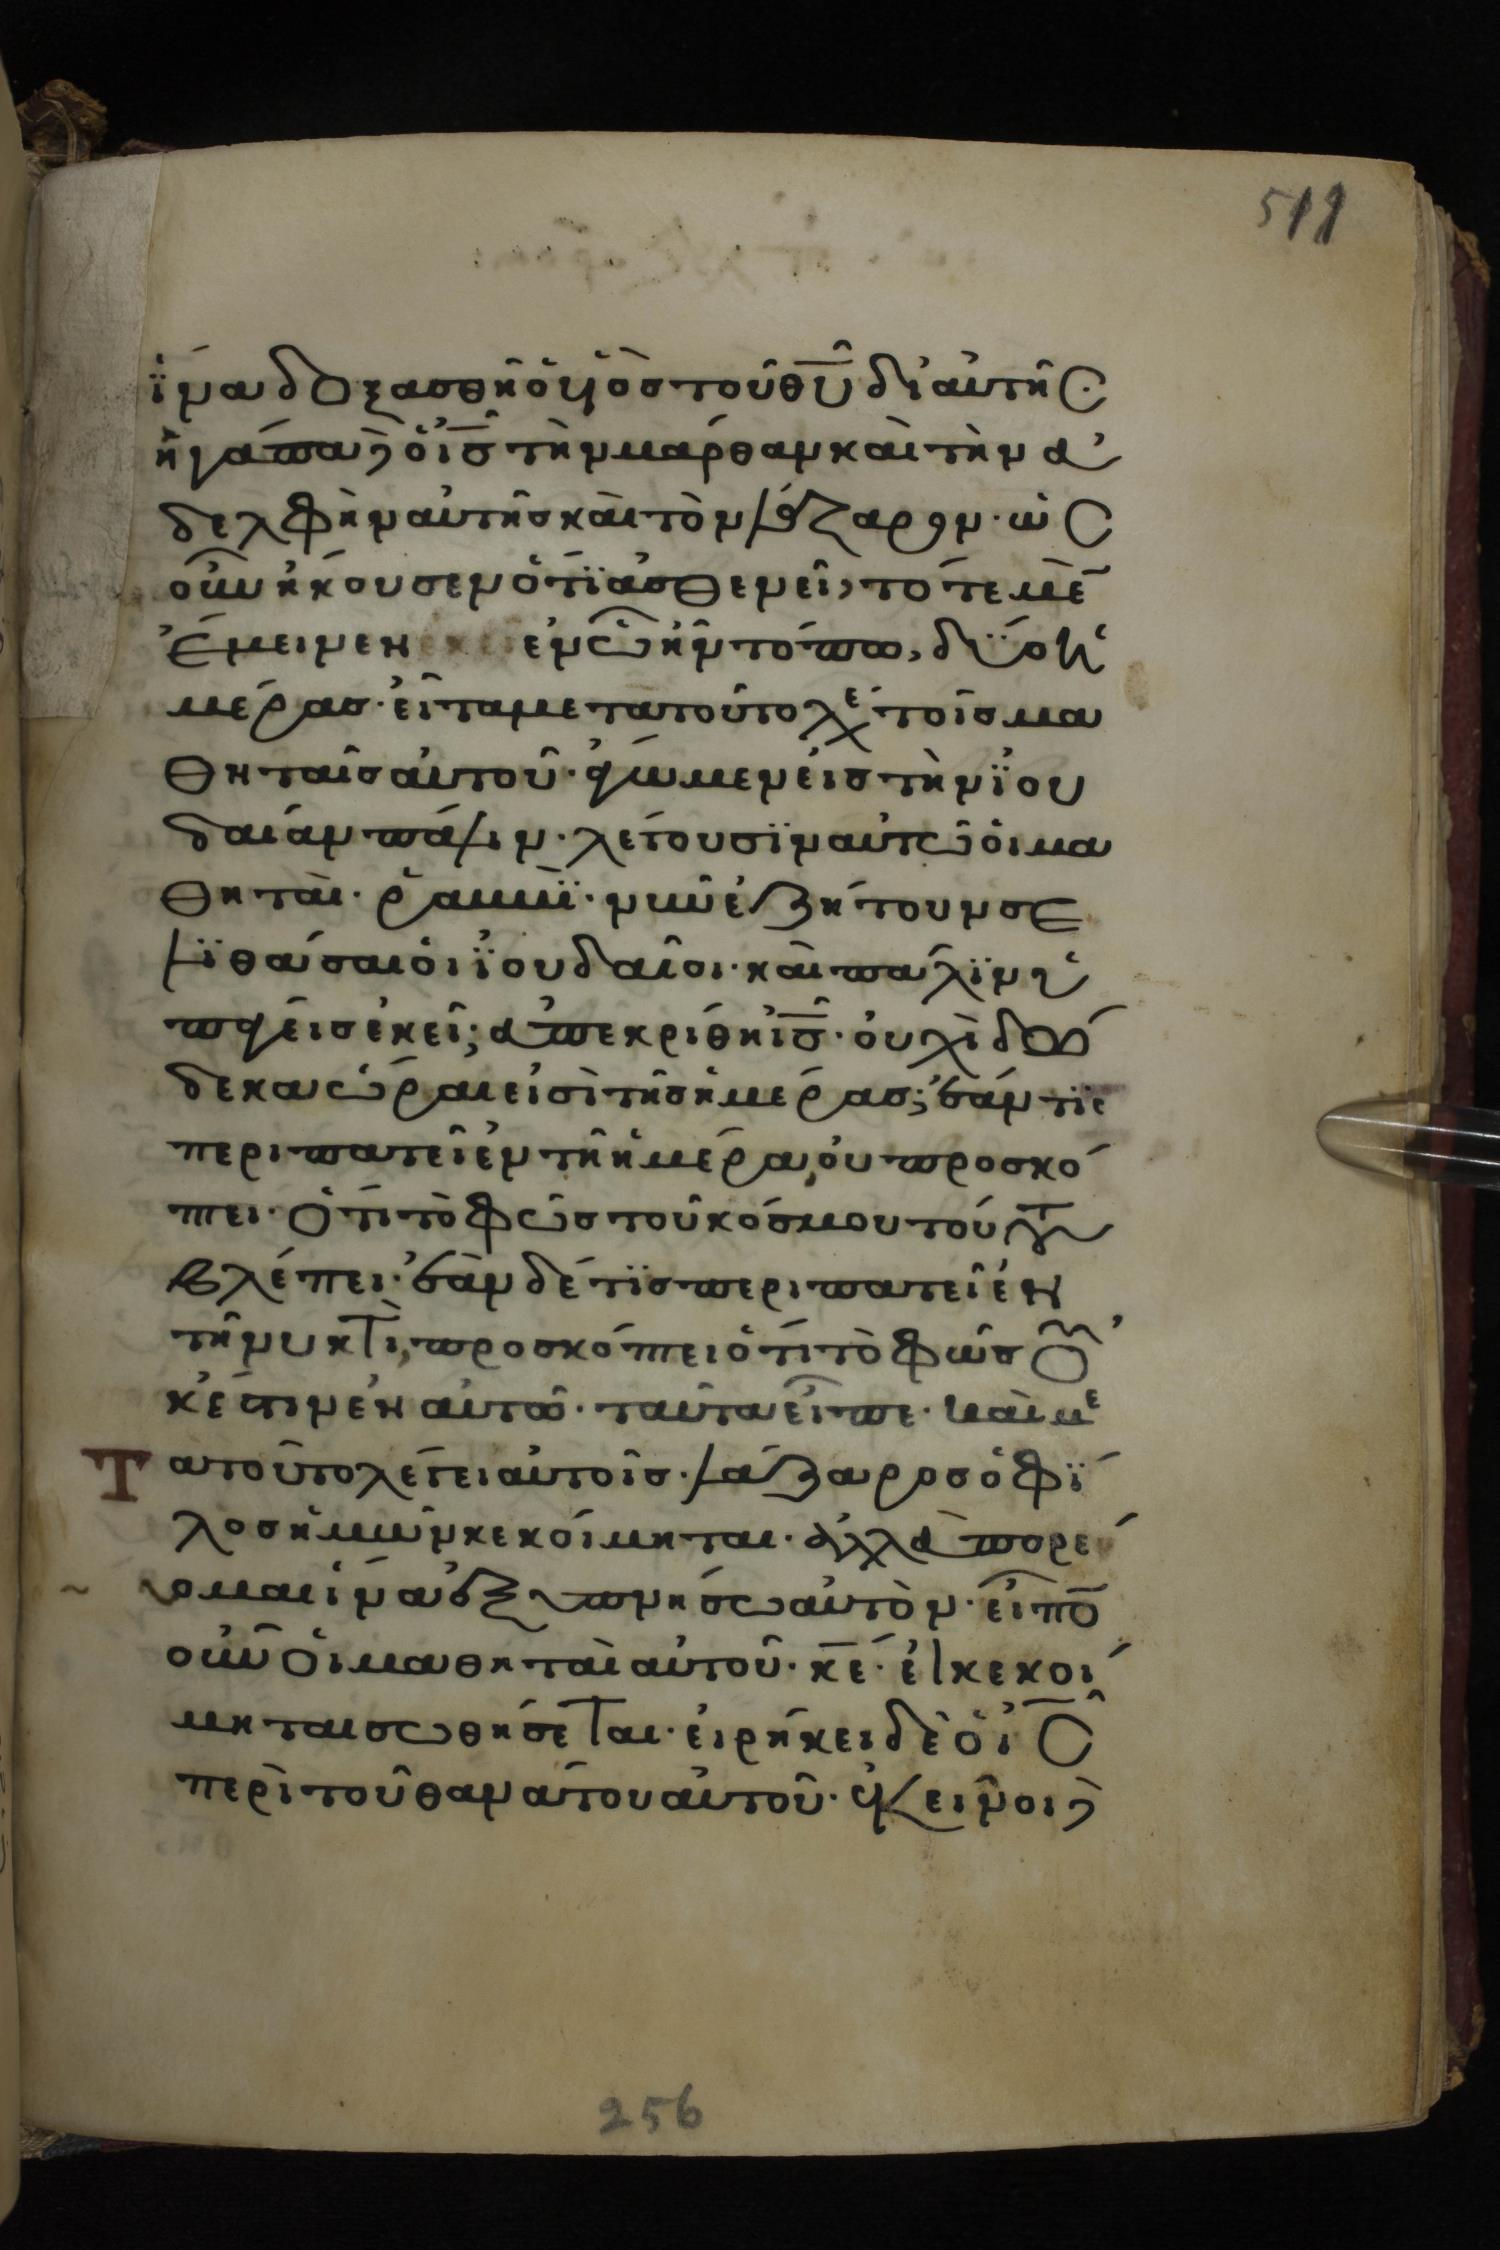 511
ἵνα δοξασθῆ ὁ υἱὸς τοῦ θῦ δι αὐτῆς·
ἠγάπα δὲ ὁ ἰς τὴν μάρθαν καὶ τὴν ἀ
δελφὴν αὐτῆς καὶ τὸν λάζαρον· ὡς
οὖν ἤκουσεν ὅτι ἀσθενεῖ, τότε μὲ
ἔμεινεν ἐν ὧ ἦν τόπω, δύο ἡ
μέρας· εἶτα μετα τοῦτο λέγει τοῖς μα
θηταῖς αὐτοῦ· ἄγωμεν εἰς τὴν ἰου
δαίαν πάλιν· λέγουσιν αὐτῶ οἱ μα
θηταὶ· ῥαββὶ· νῦν ἐζήτουν σε
λιθάσαι οἱ ἰουδαῖοι· καὶ πάλιν ὑ
πάγεις ἐκεῖ; ἀπεκρίθη ἰς· οὐχὶ δώ
δεκα ὧραι εἰσὶ τῆς ἡμέρας; ἐάν τις
περιπατεῖ ἐν τῆ ἡμέρα, οὐ προσκό
πτει· ὅτι τὸ φῶς τοῦ κόσμου τούτου
βλέπει· ἐὰν δέ τις περιπατεῖ ἐν
τῆ νυκτὶ, προσκόπτει ὅτι τὸ φῶς οὐ
κ ἔστιν ἐν αὐτῶ· ταῦτα εἶπε· καὶ με
τα τοῦτο λέγει αὐτοῖς· λάζαρος ὁ φί
λος ἡμῶν κεκοίμηται· ἀλλὰ πορεύ
ομαι ἵνα ἐξυπνήσω αὐτὸν· εἶπο
οὖν οἱ μαθηταὶ αὐτοῦ· κε· εἰ κεκοί
μηται σωθήσεται· εἰρήκει δὲ ὁ ἰς
περὶ τοῦ θανάτου αὐτοῦ· ἐκεῖνοι δὲ
256